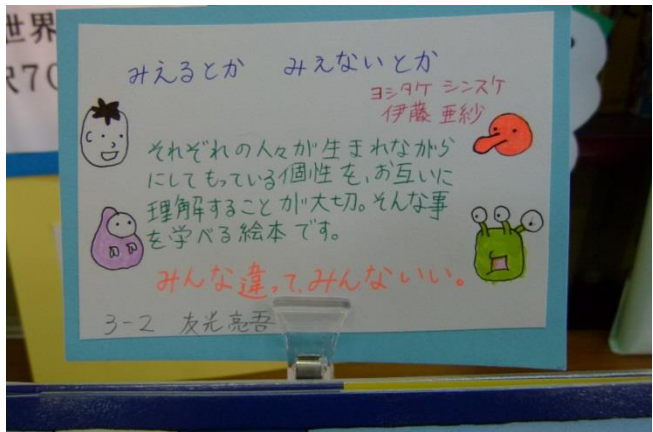 世界
尺70
みえるとか みえないとか
ヨシタケ シンスケ
伊藤 亜紗
それぞれの人々が生まれながら
にしてもっている個性を、お互いに
理解することが大切。そんな事
を学べる絵本です。
みんな違って、みんないい。
3-2 友光亮吾